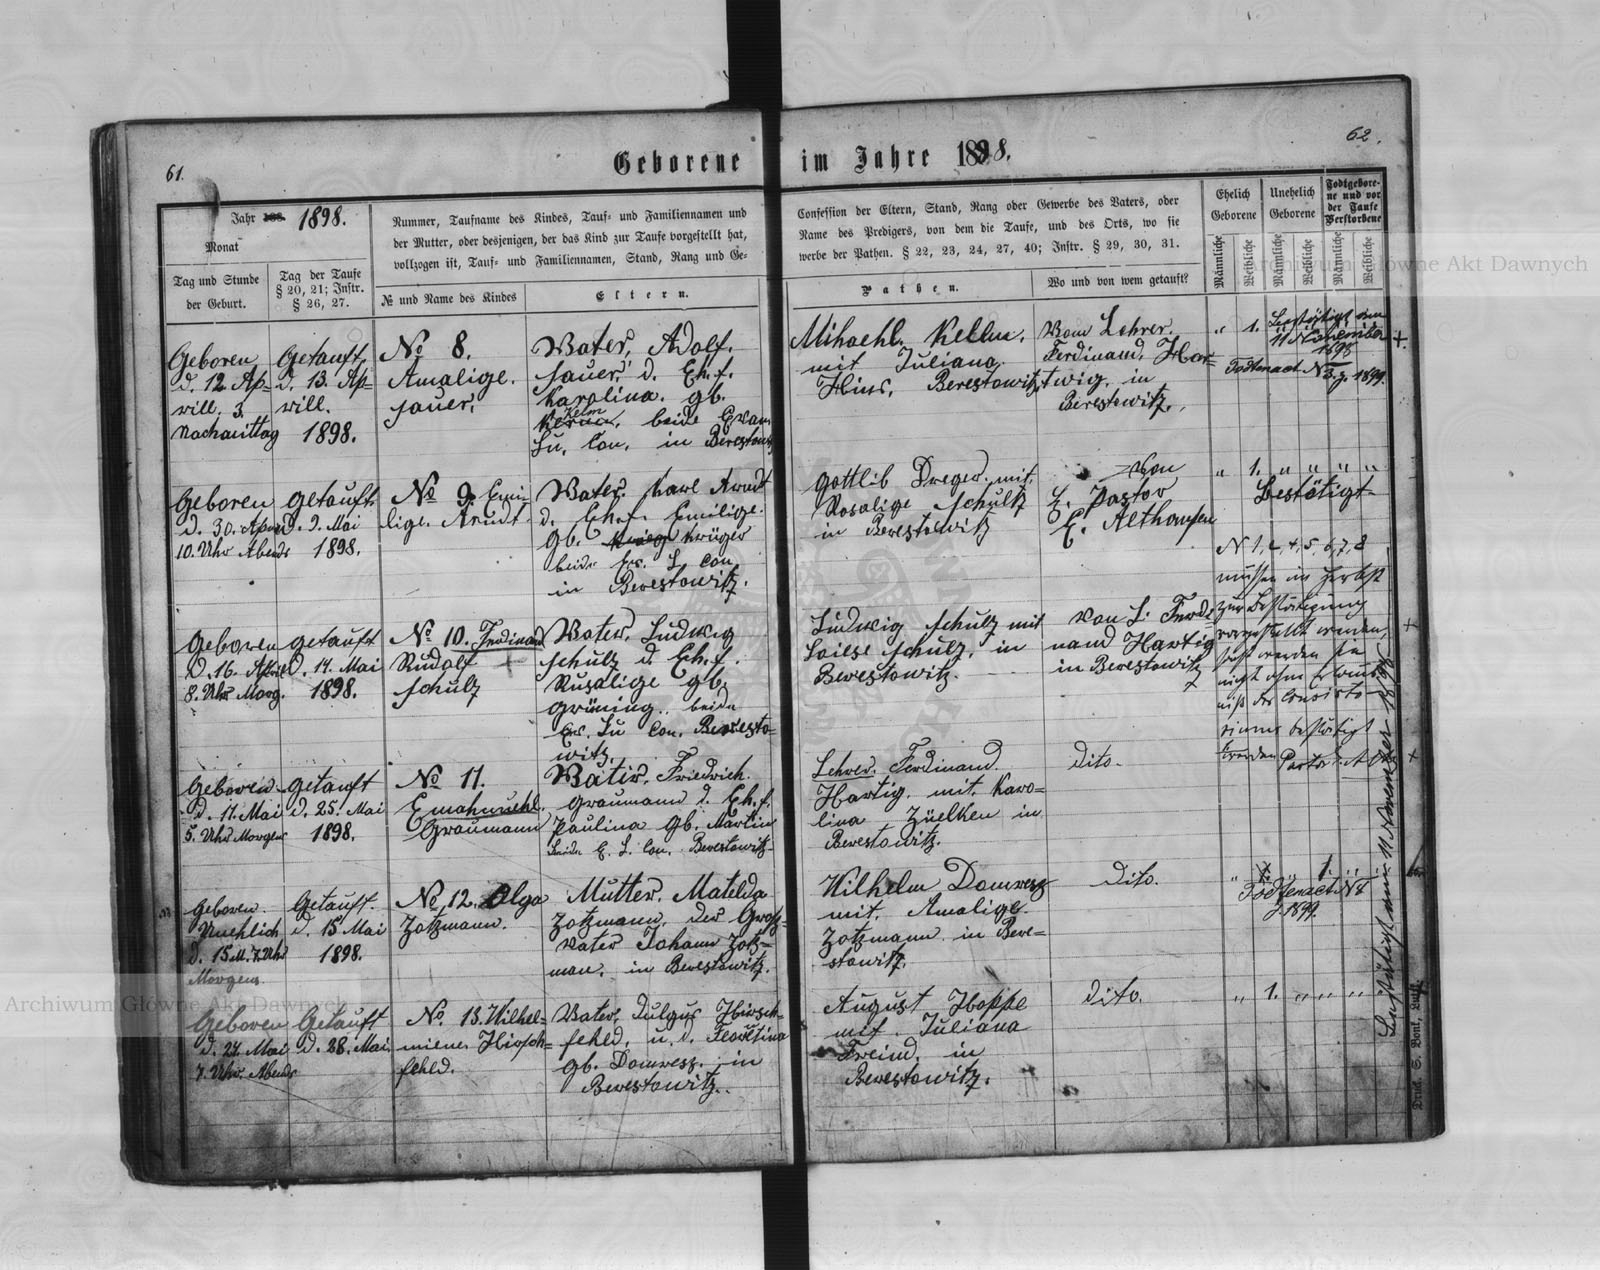 61.
Geborene im Jahre 1898.
62.
Jahr 1898.
Monat
Tag und Stunde
der Geburt.
Tag der Taufe
§ 20, 21; Instr.
§ 26, 27.
Nummer, Taufname des Kindes, Tauf- und Familiennamen und
der Mutter, oder desjenigen, der das Kind zur Taufe vorgestellt hat,
vollzogen ist, Tauf- und Familiennamen, Stand, Rang und Ge-
№ und Name des Kindes
Eltern.
Confession der Eltern, Stand, Rang oder Gewerbe des Vaters, oder
Name des Predigers, von dem die Taufe, und des Orts, wo sie
werbe der Pathen. § 22, 23, 24, 27, 40; Instr. § 29, 30, 31.
Pathen.
Wo und von wem getauft?
Ehelich
Geborene
Unehelich
Geborene
Todtgebore-
ne und vor
der Taufe
Verstorbene
Männliche
Weibliche
Männliche
Weibliche
Männliche
Weibliche
Geboren
d. 12. Ap-
rill. 3.
Nachmittag
Getauft,
d. 13. Ap-
rill.
1898.
No 8.
Amalige.
Sauer,
Vater, Adolf.
Sauer, d. Eh. f.
Karolina. gb.
Kelm
beide Evan.
Lu. Con. in Berestowitz
Mihaehl. Kelm.
mit Juliana.
Hins, Berestowitz
Vom Lehrer.
Ferdinand, Har-
twig. in
Berestowitz.
" 1.
Bestätigt den
11 November
1898
Todtenact N 3. J. 1899.
Geboren
d. 30. April
10. Uhr Abends
Getauft
d. 9. Mai
1898.
No 9. Emi-
lige. Arndt.
Vater. Karl Arndt
d. Eh. f. Emilige.
Gb. Krüger
beide Ev. L. Con
in Berestowitz.
Gottlib Dreger. mit.
Rosalige Schultz
in Berestowitz
Von
H. Pastor
E. Althausen
" 1. " " " "
Bestätigt
N 1, 2, 4, 5, 6, 7, 8
müssen im Herbst
zur Bestätigung
vorgestellt werden,
sonst werden sie
nicht ohne Erlaub-
niß des Consisto-
riums bestätigt
werden Pastor E. A
Geboren
d. 16. April
8. Uhr Morg.
Getauft
d. 14. Mai
1898.
No 10. Ferdinand
Rudolf
Schulz
Vater. Ludwig
Schulz d. Eh. f.
Rusalige gb.
Grüning. beide
Ev. Lu Con. Beresto-
witz.
Ludwig Schulz mit
Loiese Schulz. in
Berestowitz.
Von L. Ferdi-
nand Hartig
in Berestowitz
Geboren
d. 11. Mai
5. Uhr Morgens
Getauft
d. 25. Mai
1898.
No 11.
Emahnuehl.
Graumann
Vater. Friedrich.
Graumann d. Eh. f.
Paulina Gb. Martin
Beide E. L. Con. Berestowitz
Lehrer. Ferdinand
Hartig. mit Karo-
lina Züelken in
Berestowitz.
dito.
Geboren.
Unehlich
d. 15 M. 7. Uhr
Morgens
Getauft.
d. 15 Mai
1898.
No 12. Olga
Zotzmann.
Mutter. Matelda
Zotzmann. der Groß-
vater Johann Zotz-
man, in Berestowitz.
Wilhelm Domresz
mit. Amalige.
Zotzmann. in Bere-
stowitz.
dito.
1.
Todtenact N 7
J. 1899.
Geboren
d. 27. Mai
7. Uhr. Abends
Getauft
d. 28. Mai
No. 13. Wilhel-
miene Hirsch-
fehld.
Vater, Julgus Hirsch-
fehld, u. d. Florettina
gb. Domresz. in
Berestowitz.
August Hoppe
mit. Juliana
Freind. in
Berestowitz.
dito.
" 1. " " " "
Bestätigt am 11 November 1898
Archiwum Główne Akt Dawnych
Archiwum Główne Akt Dawnych